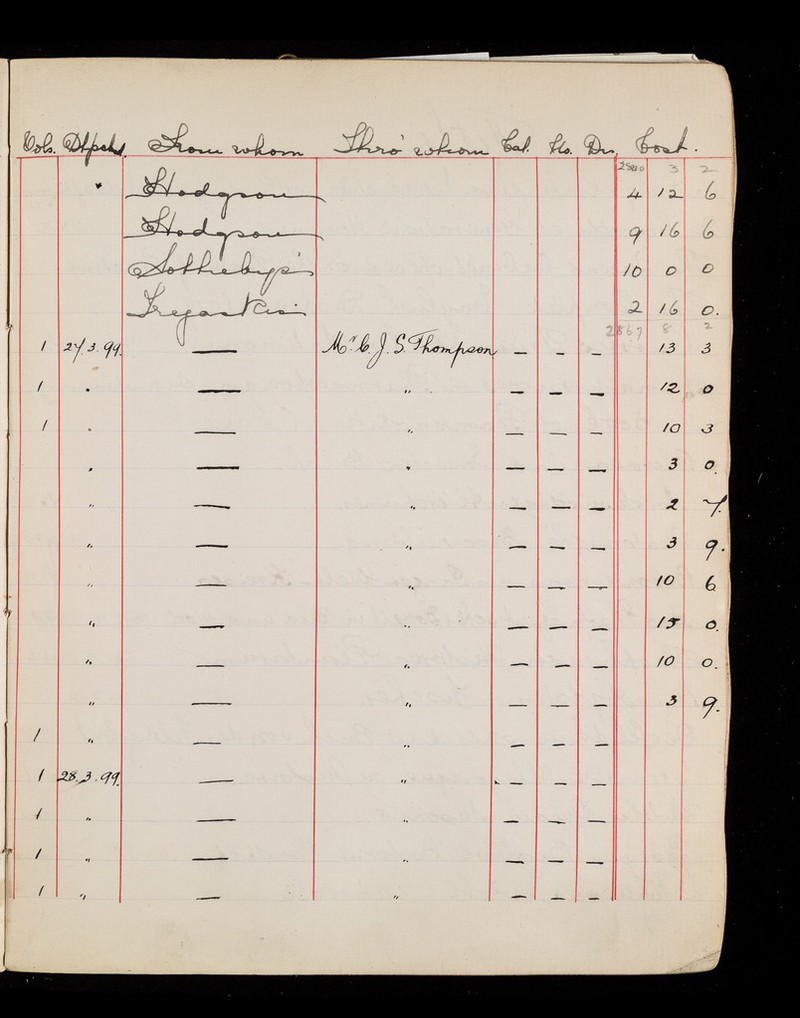 Vols. Dtpchd. From whom Thro' whom Cat. No. Div. Cost.
2840 3 2
" Hodgson 4 12 6
Hodgson 9 16 6
Sotheby's 10 0 0
Tregaskis 2 16 0.
2867 8 2
1 27.3.99. — Mr. C. J. S. Thompson — — — 13 3
1 " — " — — — 12 0
1 " — " — — — 10 3
" — " — — — 3 0.
" — " — — — 2 7.
" — " — — — 3 9.
" — " — — — 10 6
" — " — — — 15 0.
" — " — — — 10 0.
" — " — — — 3 9.
1 " — " — — —
1 28.3.99. — " — — —
1 " — " — — —
1 " — " — — —
1 " — " — — —